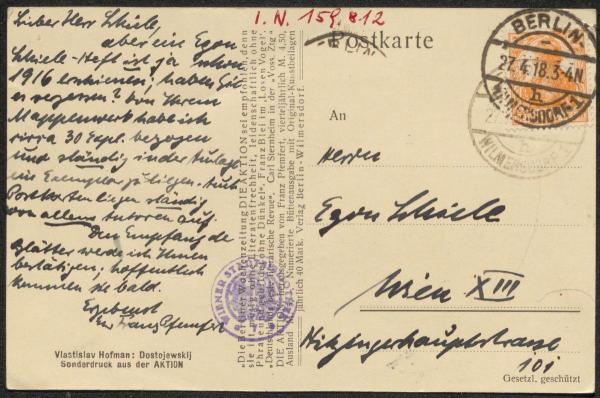 I. N. 159.812
Lieber Herr Schiele,
aber ein Egon
Schiele-Heft ist ja schon
1916 erschienen; haben Sie
es vergessen? Von Ihrem
Mappenwerk habe ich
circa 30 Expl. bezogen
und ständig in der Auslage
ein Exemplar zu liegen. Auch
Postkarten liegen ständig
von allen Autoren auf.
Den Empfang der
Blätter werde ich Ihnen
bestätigen; hoffentlich
kommen sie bald.
Ergebenst
Ihr Franz Pfemfert
Vlastislav Hofman: Dostojewskij
Sonderdruck aus der AKTION
„Die Berliner Wochenzeitung DIE AKTION sei empfohlen, denn
sie ist mutig ohne Literatenfrechheit, leidenschaftlich ohne
Phrase und gebildet ohne Dünkel". Franz Blei im „Losen Vogel".
„Deutschlands beste literarische Revue". Carl Sternheim in der „Voss. Ztg"
DIE AKTION, herausgegeben von Franz Pfemfert, vierteljährlich M. 4,50,
Ausland Numerierte Büttenausgabe mit Original-Kunstbeilagen
jährlich 40 Mark. Verlag Berlin-Wilmersdorf.
Postkarte
BERLIN-
27.4.18.3-4N.
h
WILMERSDORF 1
WILMERSDORF
h
An
Herrn
Egon Schiele
Wien XIII
Hietzingerhauptstrasse
101
Gesetzl. geschützt